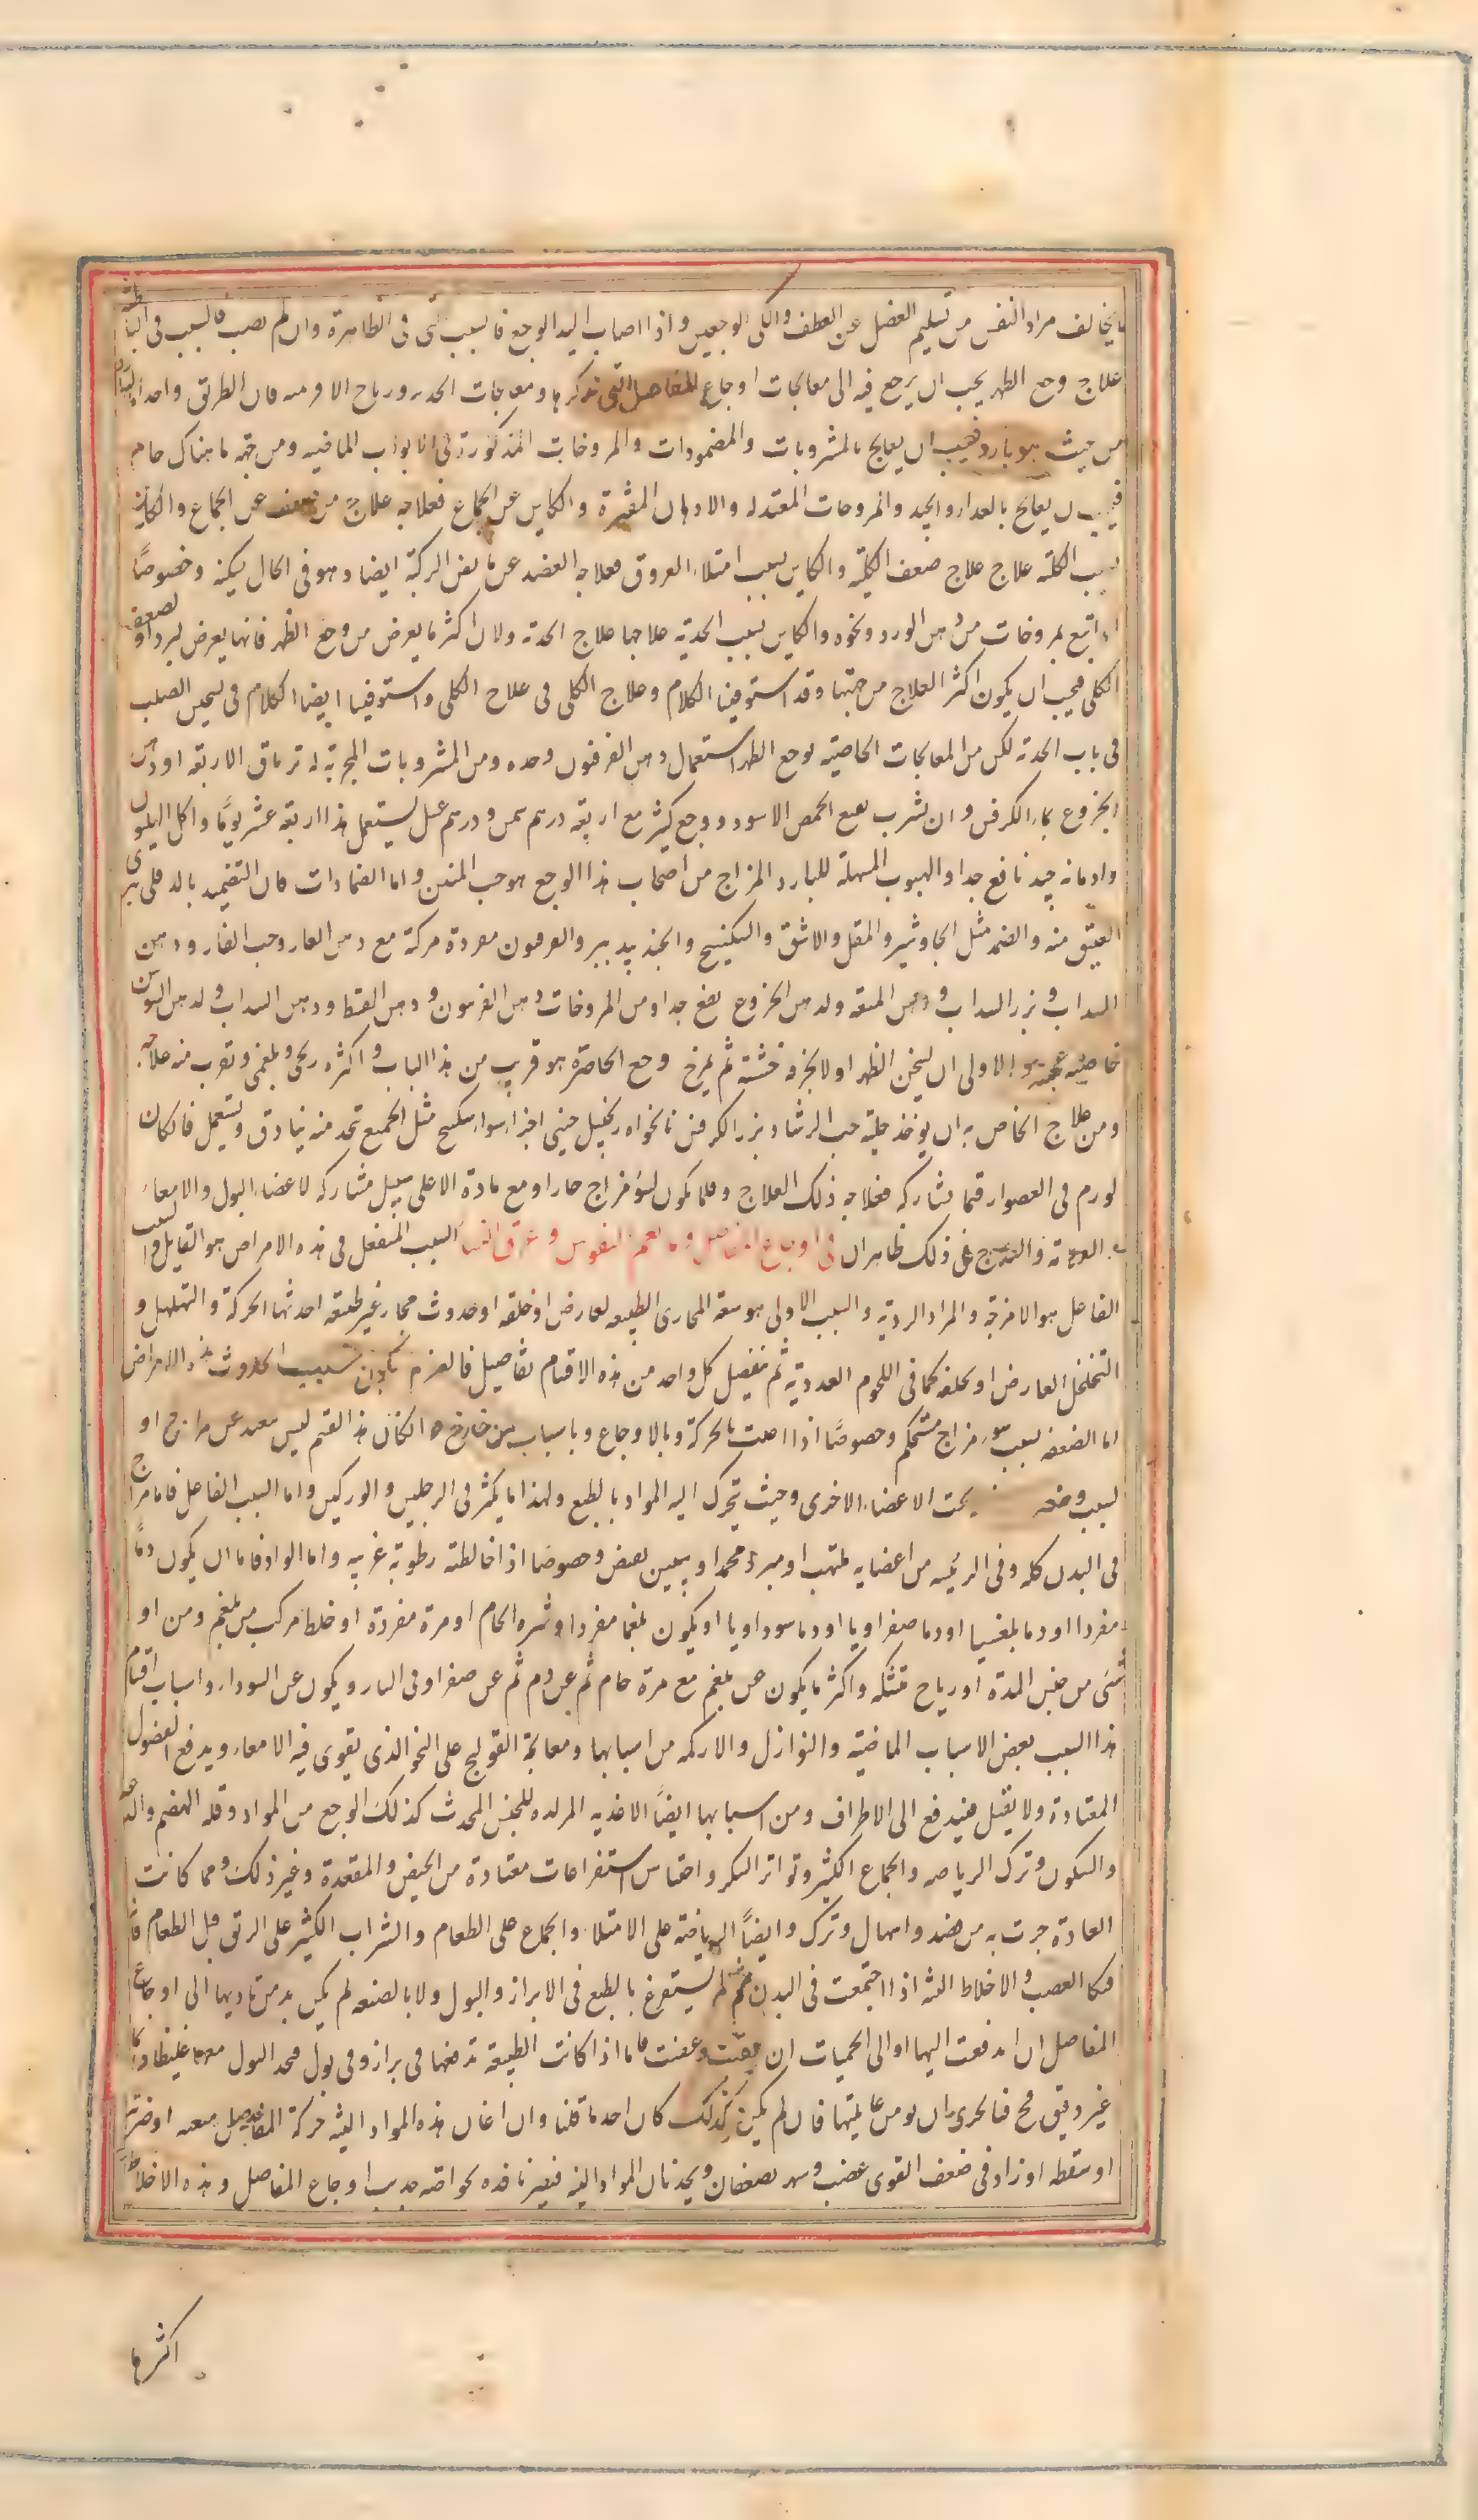 ما يخالف مراد النفس من تسليم العضل عن العطف والكى الوجعين واذا اصاب اليد الوجع فالسبب شى فى الظاهرة وان لم يصب فالسبب فى الباطنة
علاج وجع الظهر يجب ان يرجع فيه الى معالجات اوجاع المفاصل التى نذكرها ومعالجات الحدبة ورياح الافرسه فان الطريق واحد
من حيث هو بارد فيجب ان يعالج بالمشروبات والمضمودات والمروخات المذكورة فى الابواب الماضيه ومن جهة ما هناك خام
فيجب ان يعالج والمروحات المعتدله والادهان المفترة والكاين عن الجماع فعلاجه علاج من ضعف عن الجماع والكاين
بسبب الكلية علاج علاج ضعف الكلية والكاين بسبب امتلاء العروق فعلاجه الفصد عن مابض الركبة ايضا وهو فى الحال يسكنه وخصوصًا
اذا اتبع بمروخات من دهن الورد ونحوه والكاين بسبب الحدبة علاجها علاج الحدبة ولان اكثر ما يعرض من وجع الظهر فانما يعرض لبرد او لضعف
الكلى فيجب ان يكون اكثر العلاج من جهتها وقد استوفينا الكلام وعلاج الكلى فى علاج الكلى واستوفينا ايضا الكلام فى تسخين الصلب
فى باب الحدبة لكن من المعالجات الخاصية لوجع الظهر استعمال دهن الفرفيون وحده ومن المشروبات المجربة له ترياق الاربعه او دهن
الخروع بماء الكرفس وان يشرب نقيع الحمص الاسود ووجع كثير مع اربعة درهم سمن ودرهم عسل يستعمل هذا اربعة عشر يومًا واكل الهليون
وادمانه جيد نافع جدا والحبوب المسهلة للبارد المزاج من اصحاب هذا الوجع هو حب المنتن واما الضمادات فان التضميد بالدفلى يبرى
العتيق منه والضمد مثل الجاوشير والمقل والاشق والسكبينج والجندبيدستر والفرفيون مفردة مركبة مع دهن الغار وحب الغار ودهن
السداب وبزر السداب ولدهن الخروع نفع جدا ومن المروخات دهن الفرفيون ودهن القسط ودهن السداب ولدهن السوسن
خاصية عجيبة والاولى ان يسخن الظهر اولا بخرقة خشنة ثم يمرخ وجع الخاصرة هو قريب من هذا الباب واكثره ريحى وبلغمى ويقرب منه علاجه
ومن علاج الخاص به ان يوخذ حلبة حب الرشاد بزر الكرفس نانخواه زنجبيل صينى اجزاء سواء سكبينج مثل الجميع تتخذ منه بنادق ويستعمل فان كان
لورم فى العضو او فيما يشاركه فعلاجه ذلك العلاج وقلما يكون لسو مزاج حار او مع مادة الا على سبيل مشاركه لاعضاء البول والامعاء
والتدبير فى ذلك ظاهر ان فى اوجاع المفاصل وما يعم النقرس وعرق النسا السبب المنفعل فى هذه الامراض هو القابل والسبب
الفاعل هو الامزجة والمواد الردية والسبب الاولى هو سعة المجارى الطبيعيه لعارض او خلقة او حدوث مجار غير طبيعية احدثها الحركة والتهلهل و
التخلخل العارض او خلقه كما فى اللحوم الغددية ثم نفصل كل واحد من هذه الاقسام تفاصيل
اما الضعف بسبب سوء مزاج مستحكم وخصوصًا اذا بالحركة وبالاوجاع وباسباب من خارج هذا القسم ليس ببعيد عن مزاج او
بسبب وضعه تحت الاعضاء الاخرى وحيث تتحرك اليه المواد بالطبع ولهذا ما يكثر فى الرجلين والوركين واما السبب الفاعل فاما مزاج
فى البدن كله وفى الرئيسه من اعضايه ملتهب او مبرد مجمد او يبس يقبض وخصوصا اذا خالطته رطوبة غريبه واما المواد فاما ان يكون دمًا
مفردا او دما بلغميا او دما صفراويا او دما سوداويا او يكون بلغما مفردا وشره الخام او مرة مفردة او خلطا مركب من بلغم ومن او
شى من جنس المدة او رياح مشبكه واكثر ما يكون عن بلغم مع مرة خام ثم عن دم ثم عن صفرا وفى النادر ويكون عن السوداء واسباب اقسام
هذا السبب بعض الاسباب الماضية والنوازل والازكمه من اسبابها ومعالجة القولنج على النحو الذى يقوى فيه الامعاء ويدفع الفضول
المعتادة ولا يقبل فيندفع الى الاطراف ومن اسبابها ايضًا الاغذيه المولده للجنس المحدث كذلك الوجع من المواد وقله الهضم والدعة
والسكون وترك الرياضه والجماع الكثير وتواتر السكر واحتباس استفراغات معتادة من الحيض والمقعدة وغير ذلك ومما كانت
العادة جرت به من فصد واسهال وترك وايضًا الرياضة على الامتلاء والجماع على الطعام والشراب الكثير على الريق قبل الطعام
العصب والاخلاط النيه اذا اجتمعت فى البدن ثم لم يستفرغ بالطبع فى الابراز والبول ولا بالصنعه لم يكن بد من تاديها الى اوجاع
المفاصل ان اندفعت اليها او الى الحميات ان بقيت وعفنت فاما اذا كانت الطبيعة تدفعها فى براز وفى بول فتجد البول معها غليظا دايما
غير رقيق فج فبالحرى ان يومن غايلتها فان لم يكن كذلك كان احد ما قلنا وان اعان هذه المواد النيه حركة المفاصل متعبه او ضربة
او سقطه او زاد فى ضعف القوى غضب وسهر يضعفان ويحدثان المواد النيه فيصير نافذه اوجاع المفاصل وهذه الاخلاط
اكثرها